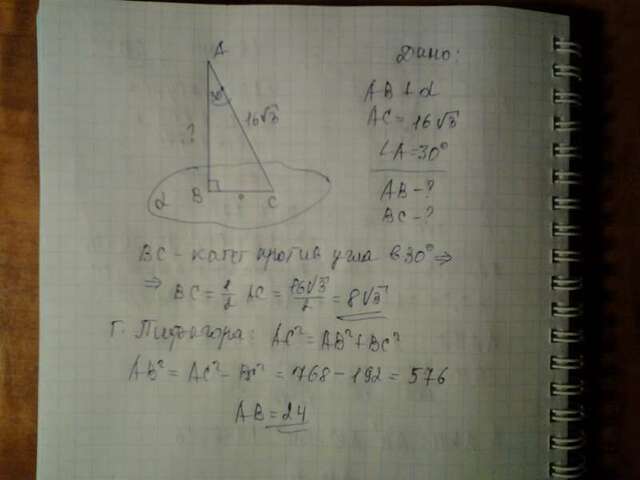 A
30°
16√3
?
B
C
α
Дано:
AB ⊥ α
AC = 16√3
∠A = 30°
AB - ?
BC - ?
BC - катет против угла в 30° ⇒
⇒ BC = 1/2 AC = 16√3/2 = 8√3
т. Пифагора: AC² = AB² + BC²
AB² = AC² - BC² = 768 - 192 = 576
AB = 24